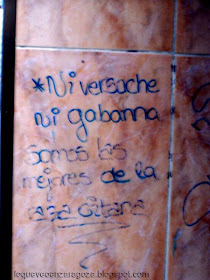 *Ni versache
ni gabanna
somos las
mejores de la
raza gitana
loqueveoenzaragoza.blogspot.com